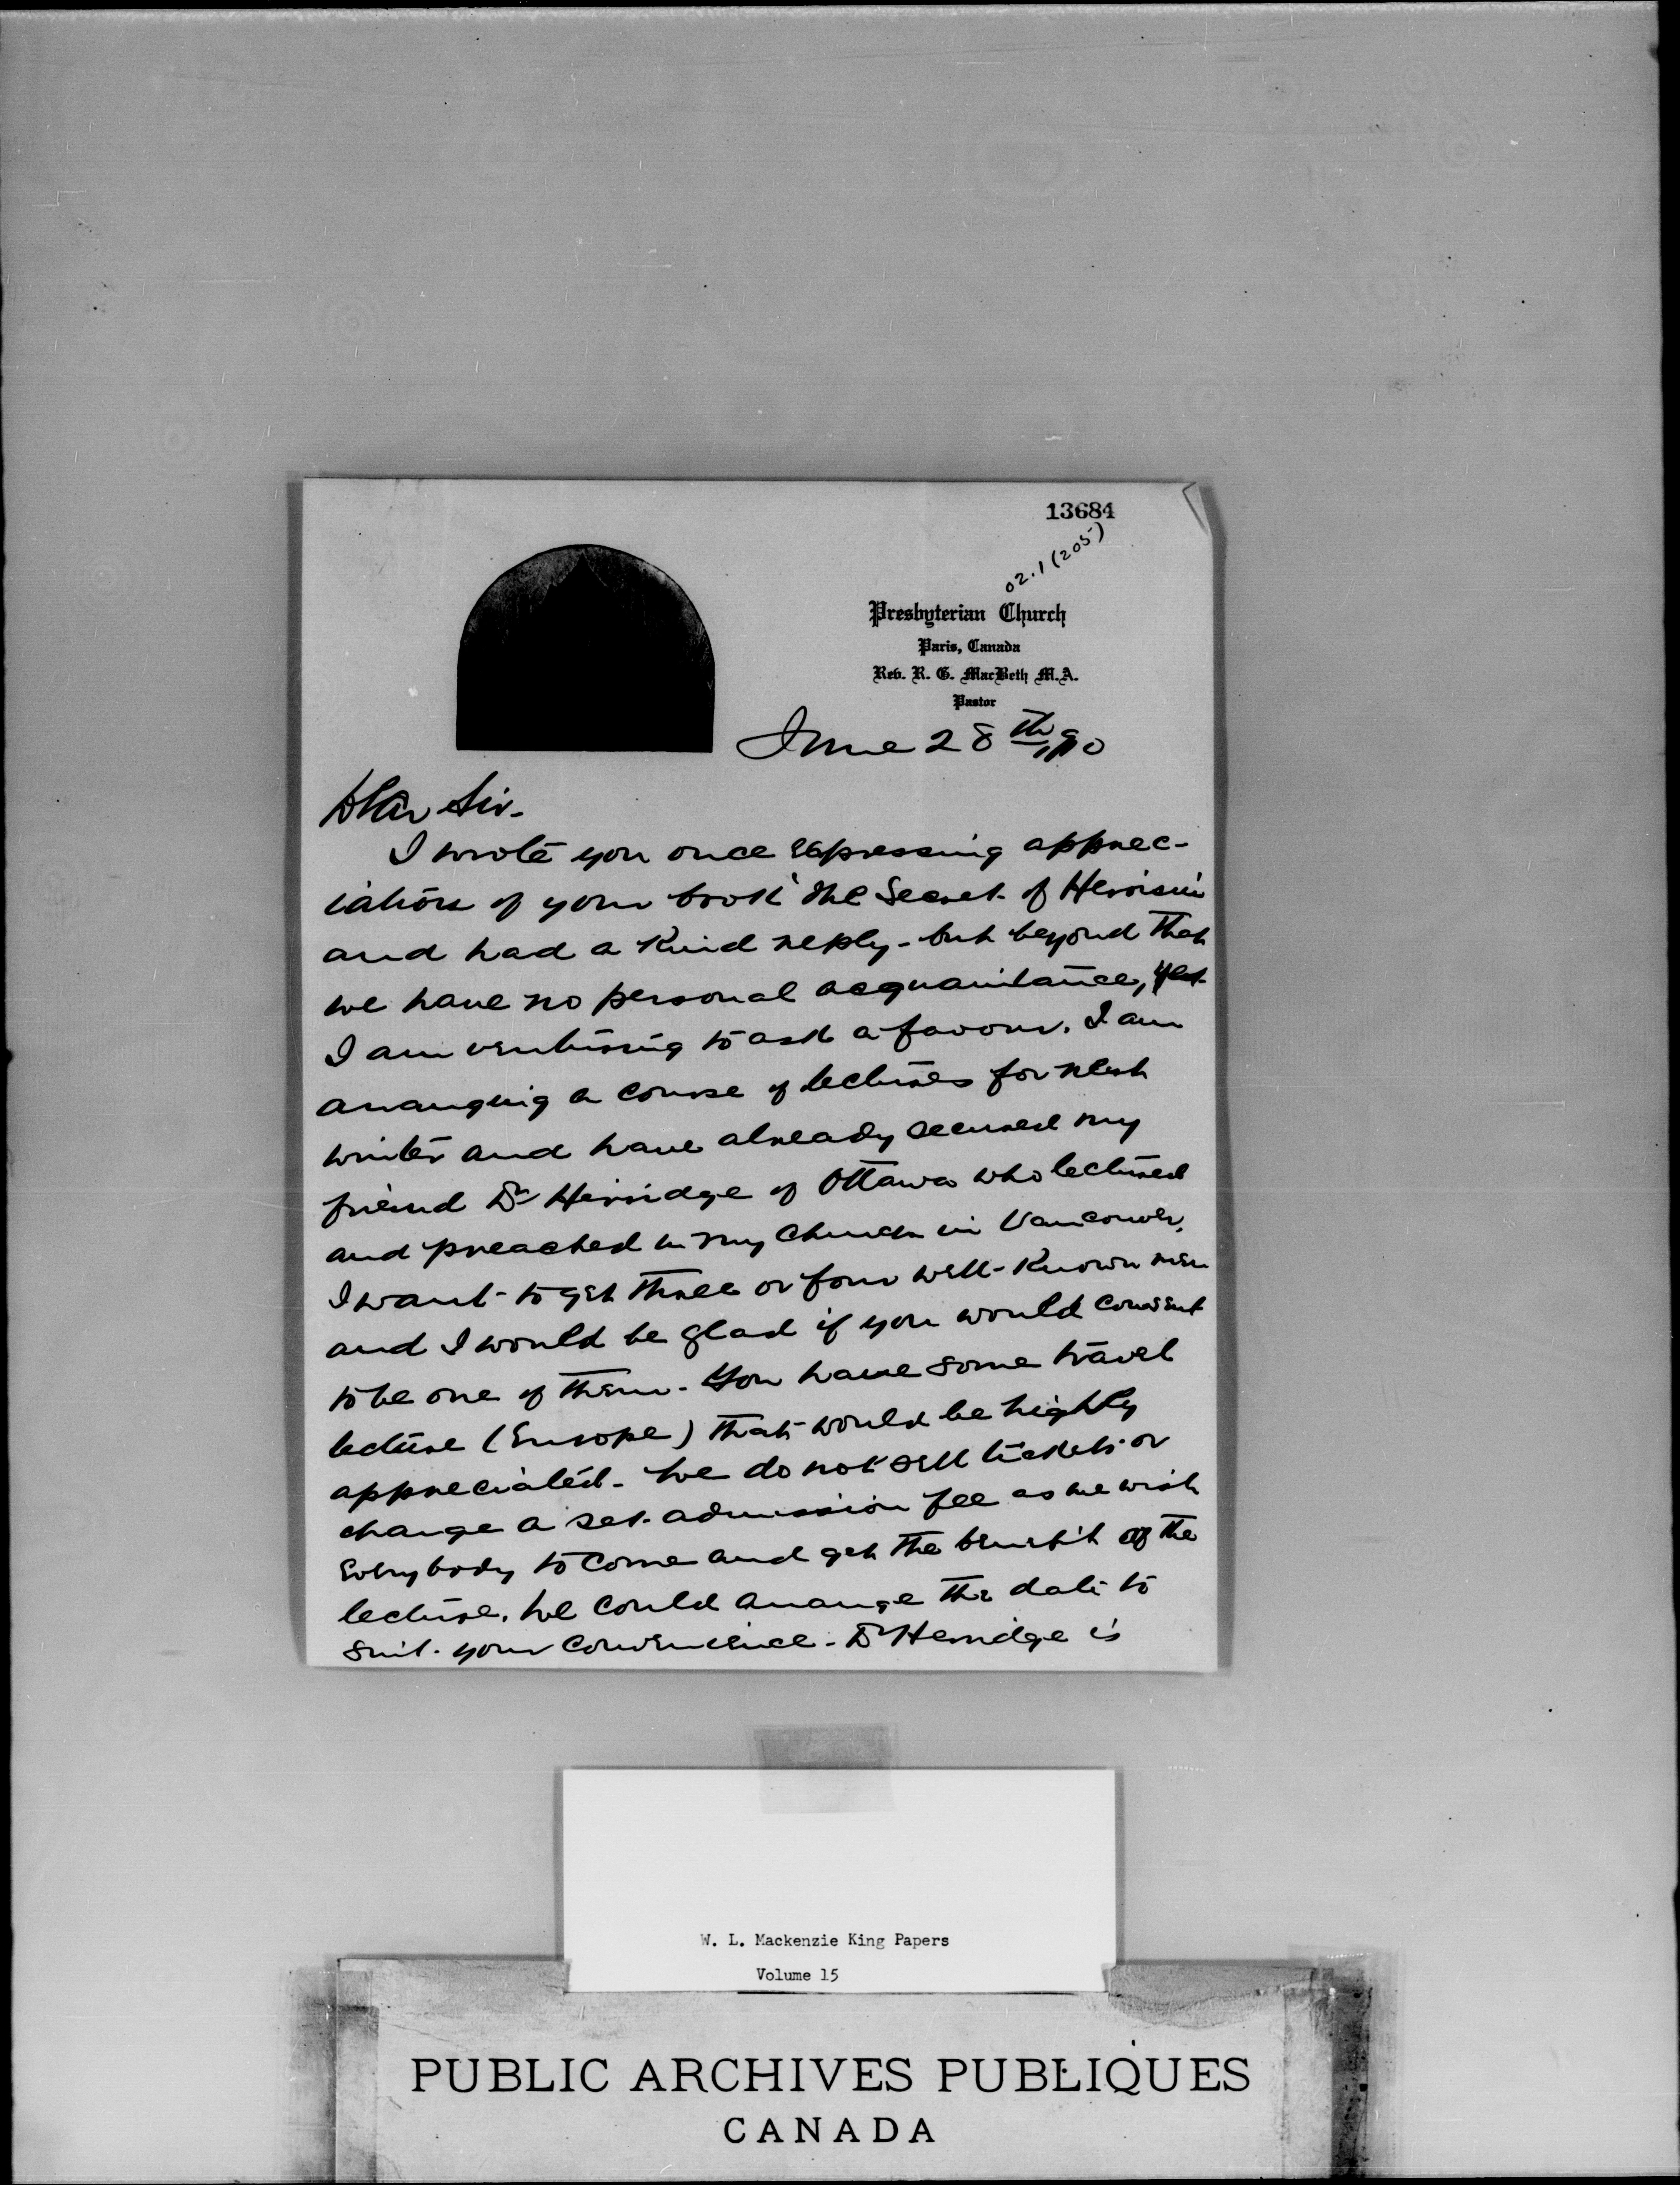 13684
02.1 (205)
Presbyterian Church
Paris, Canada
Rev. R. G. MacBeth M.A.
Pastor
June 28th,
Dear Sir-
I wrote you once expressing apprec-
iation of your book 'The Secret of Heroism
and had a kind reply - but beyond that
we have no personal acquaintance, yet
I am venturing to ask a favour. I am
arranging a course of lectures for next
winter and have already secured my
friend Dr Herridge of Ottawa who lectured
and preached in my church in Vancouver.
I want to get three or four well-known men
and I would be glad if you would consent
to be one of them. You have some travel
lecture (Europe) that would be highly
appreciated. We do not sell tickets or
charge a set admission fee as we wish
everybody to come and get the benefit of the
lecture. We could arrange the date to
suit your convenience. Dr Herridge is
W. L. Mackenzie King Papers
Volume 15
PUBLIC ARCHIVES PUBLIQUES
CANADA